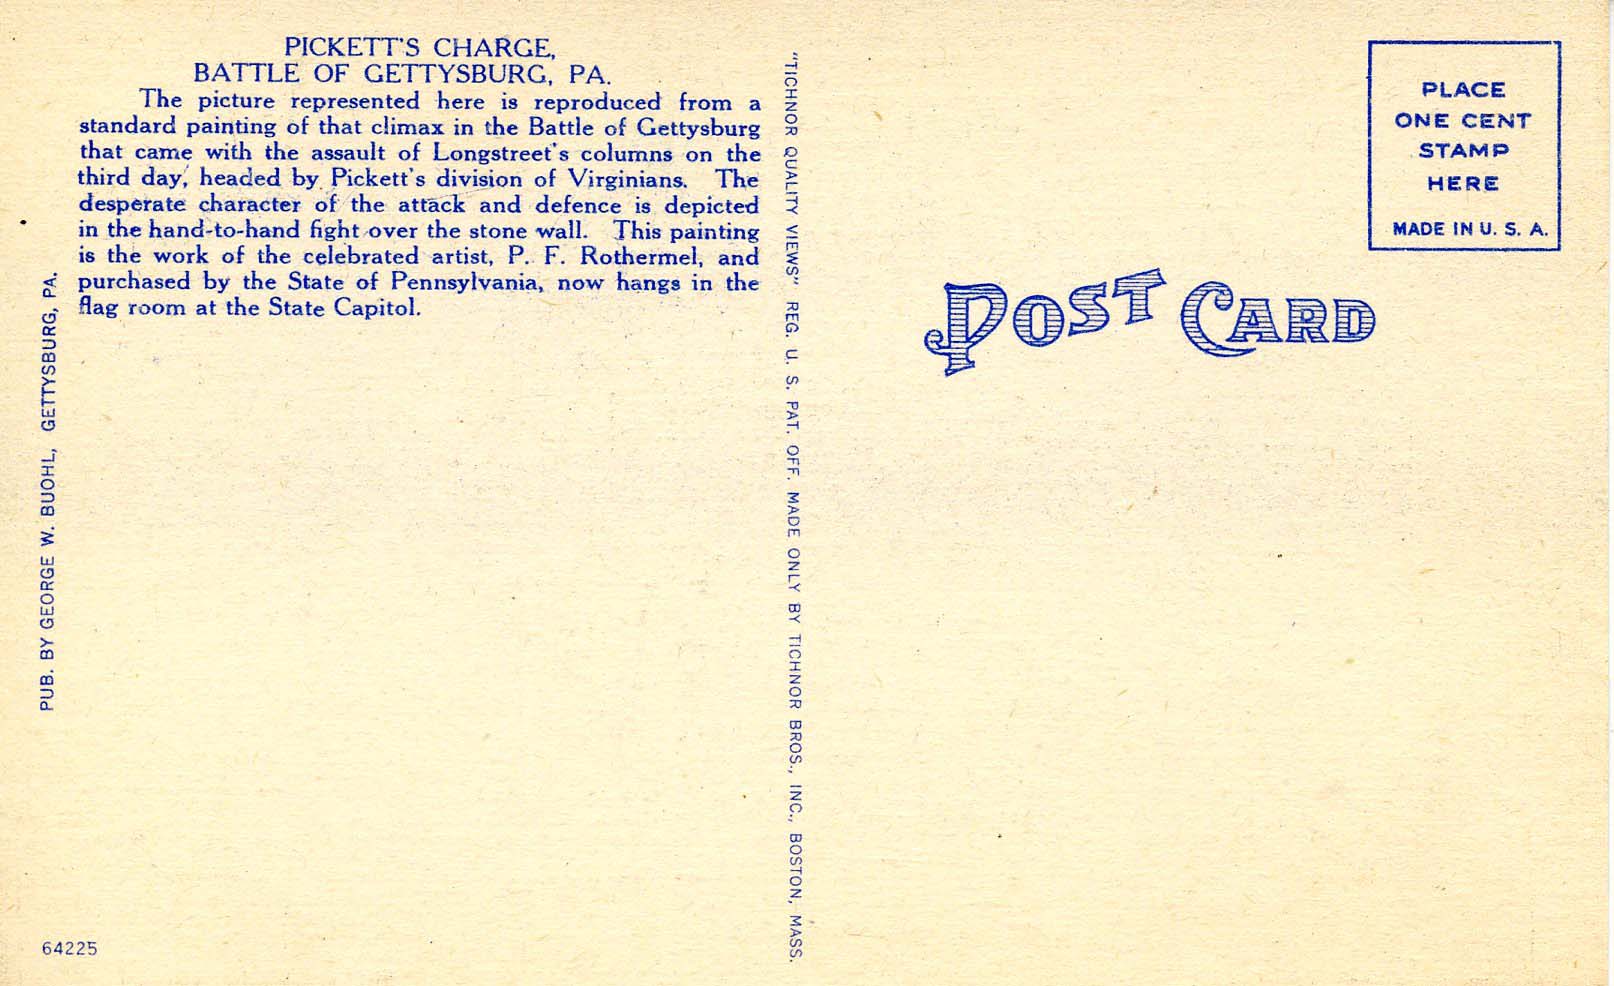 PICKETT'S CHARGE,
BATTLE OF GETTYSBURG, PA.
The picture represented here is reproduced from a
standard painting of that climax in the Battle of Gettysburg
that came with the assault of Longstreet's columns on the
third day, headed by Pickett's division of Virginians. The
desperate character of the attack and defence is depicted
in the hand-to-hand fight over the stone wall. This painting
is the work of the celebrated artist, P. F. Rothermel, and
purchased by the State of Pennsylvania, now hangs in the
flag room at the State Capitol.
PUB. BY GEORGE W. BUOHL, GETTYSBURG, PA.
64225
"TICHNOR QUALITY VIEWS" REG. U. S. PAT. OFF. MADE ONLY BY TICHNOR BROS., INC., BOSTON, MASS.
PLACE
ONE CENT
STAMP
HERE
MADE IN U. S. A.
POST CARD